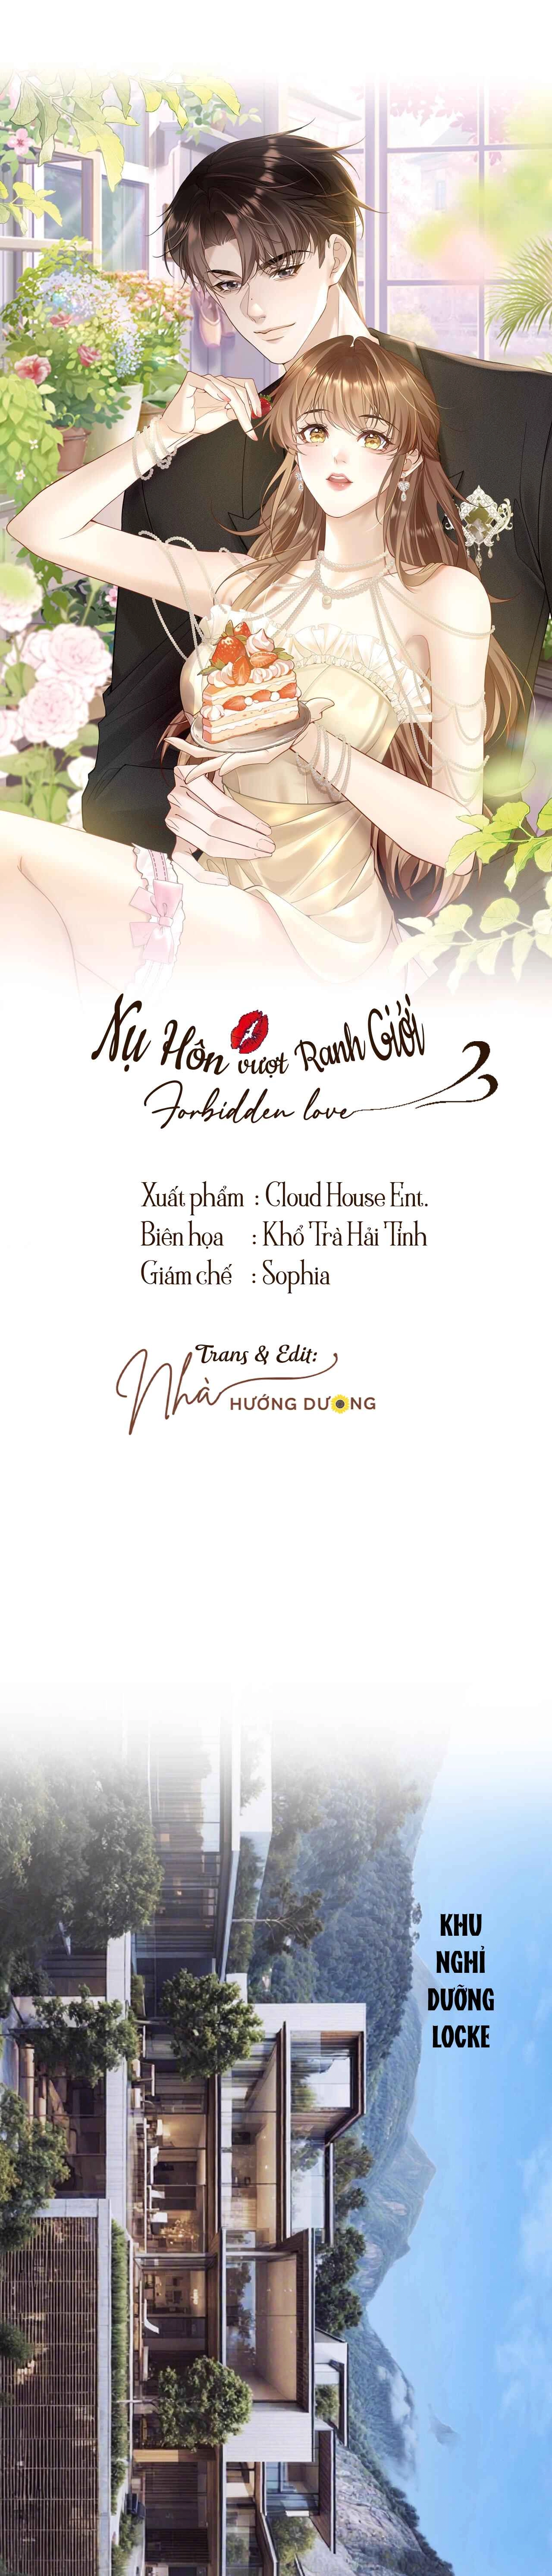 Nụ Hôn vượt Ranh Giới
Forbidden love
Xuất phẩm : Cloud House Ent.
Biên họa : Khổ Trà Hải Tinh
Giám chế : Sophia
Trans & Edit:
Nhà HƯỚNG DƯƠNG
KHU
NGHỈ
DƯỠNG
LOCKE